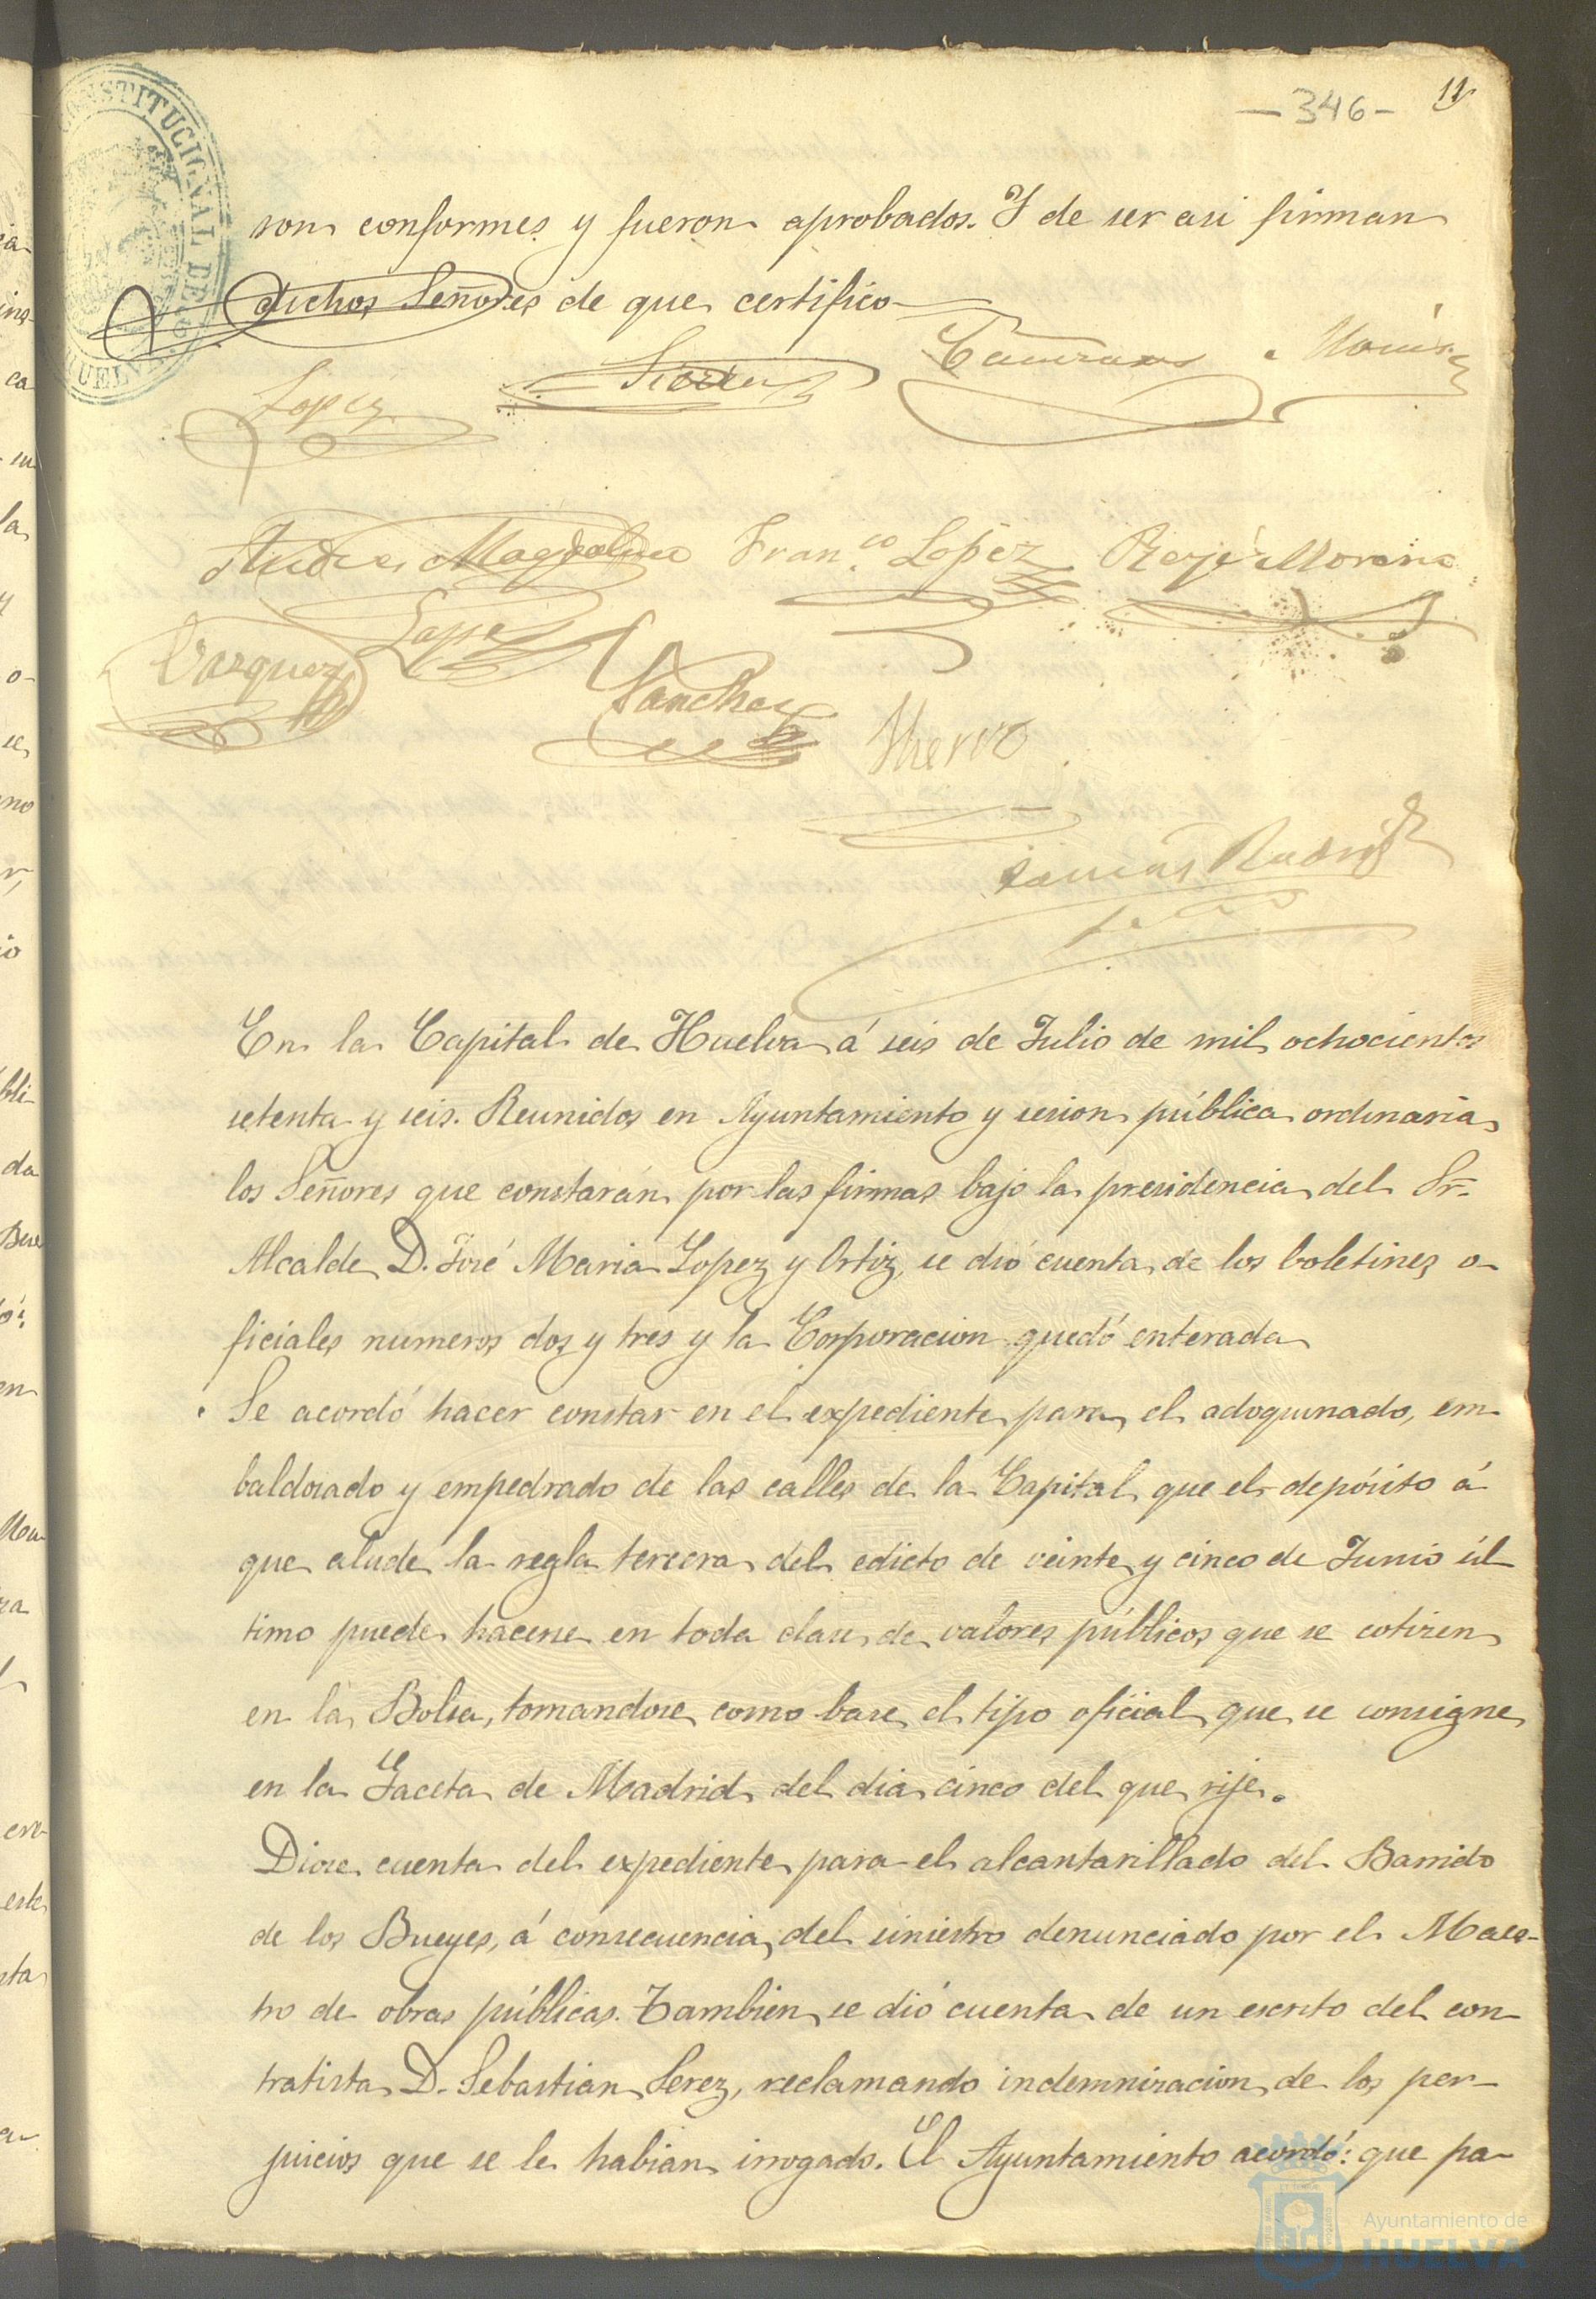 - 346 - 11
son conformes y fueron aprobados. Y de ser asi firman
dichos Señores de que certifico
Lopez
Magdalena Fran.co Lopez Moreno
Vazquez Lopez
Sanchez
En la Capital de Huelva á seis de Julio de mil ochocientos
setenta y seis. Reunidos en Ayuntamiento y sesion pública ordinaria
los Señores que constarán por las firmas bajo la presidencia del Sr.
Alcalde D. José Maria Lopez y Ortiz, se dió cuenta de los boletines o-
ficiales numeros dos y tres y la Corporacion quedó enterada
Se acordó hacer constar en el expediente para el adoquinado, em-
baldosado y empedrado de las calles de la Capital que el depósito á
que alude la regla tercera del edicto de veinte y cinco de Junio úl
timo puede hacerse en toda clase de valores públicos que se cotizen
en la Bolsa, tomandose como base el tipo oficial que se consigne
en la Gaceta de Madrid del dia cinco del que rije.
Diose cuenta del expediente para el alcantarillado del Barrido
de los Bueyes, á consecuencia del siniestro denunciado por el Maes-
tro de obras públicas. Tambien se dió cuenta de un escrito del con-
tratista D. Sebastian Perez, reclamando indemnizacion de los per-
juicios que se le habian irrogado. El Ayuntamiento acordó: que pa-
CONSTITUCIONAL DE HUELVA
Ayuntamiento de
HUELVA